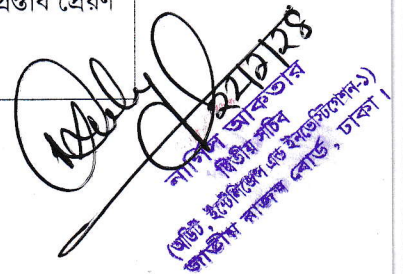 প্রস্তাব প্রেরণ
২২/২/২৪
নার্গিস আকতার
দ্বিতীয় সচিব
(অডিট, ইন্টেলিজেন্স এন্ড ইনভেস্টিগেশন-১)
জাতীয় রাজস্ব বোর্ড, ঢাকা।